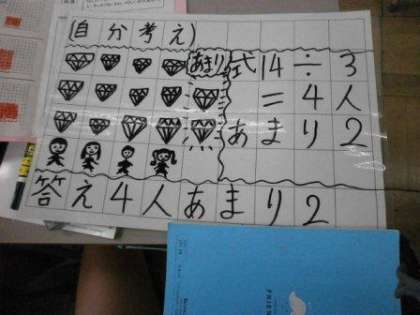 (自分考え)
あまり
式14÷3
=4人
あまり2
答え4人あまり2